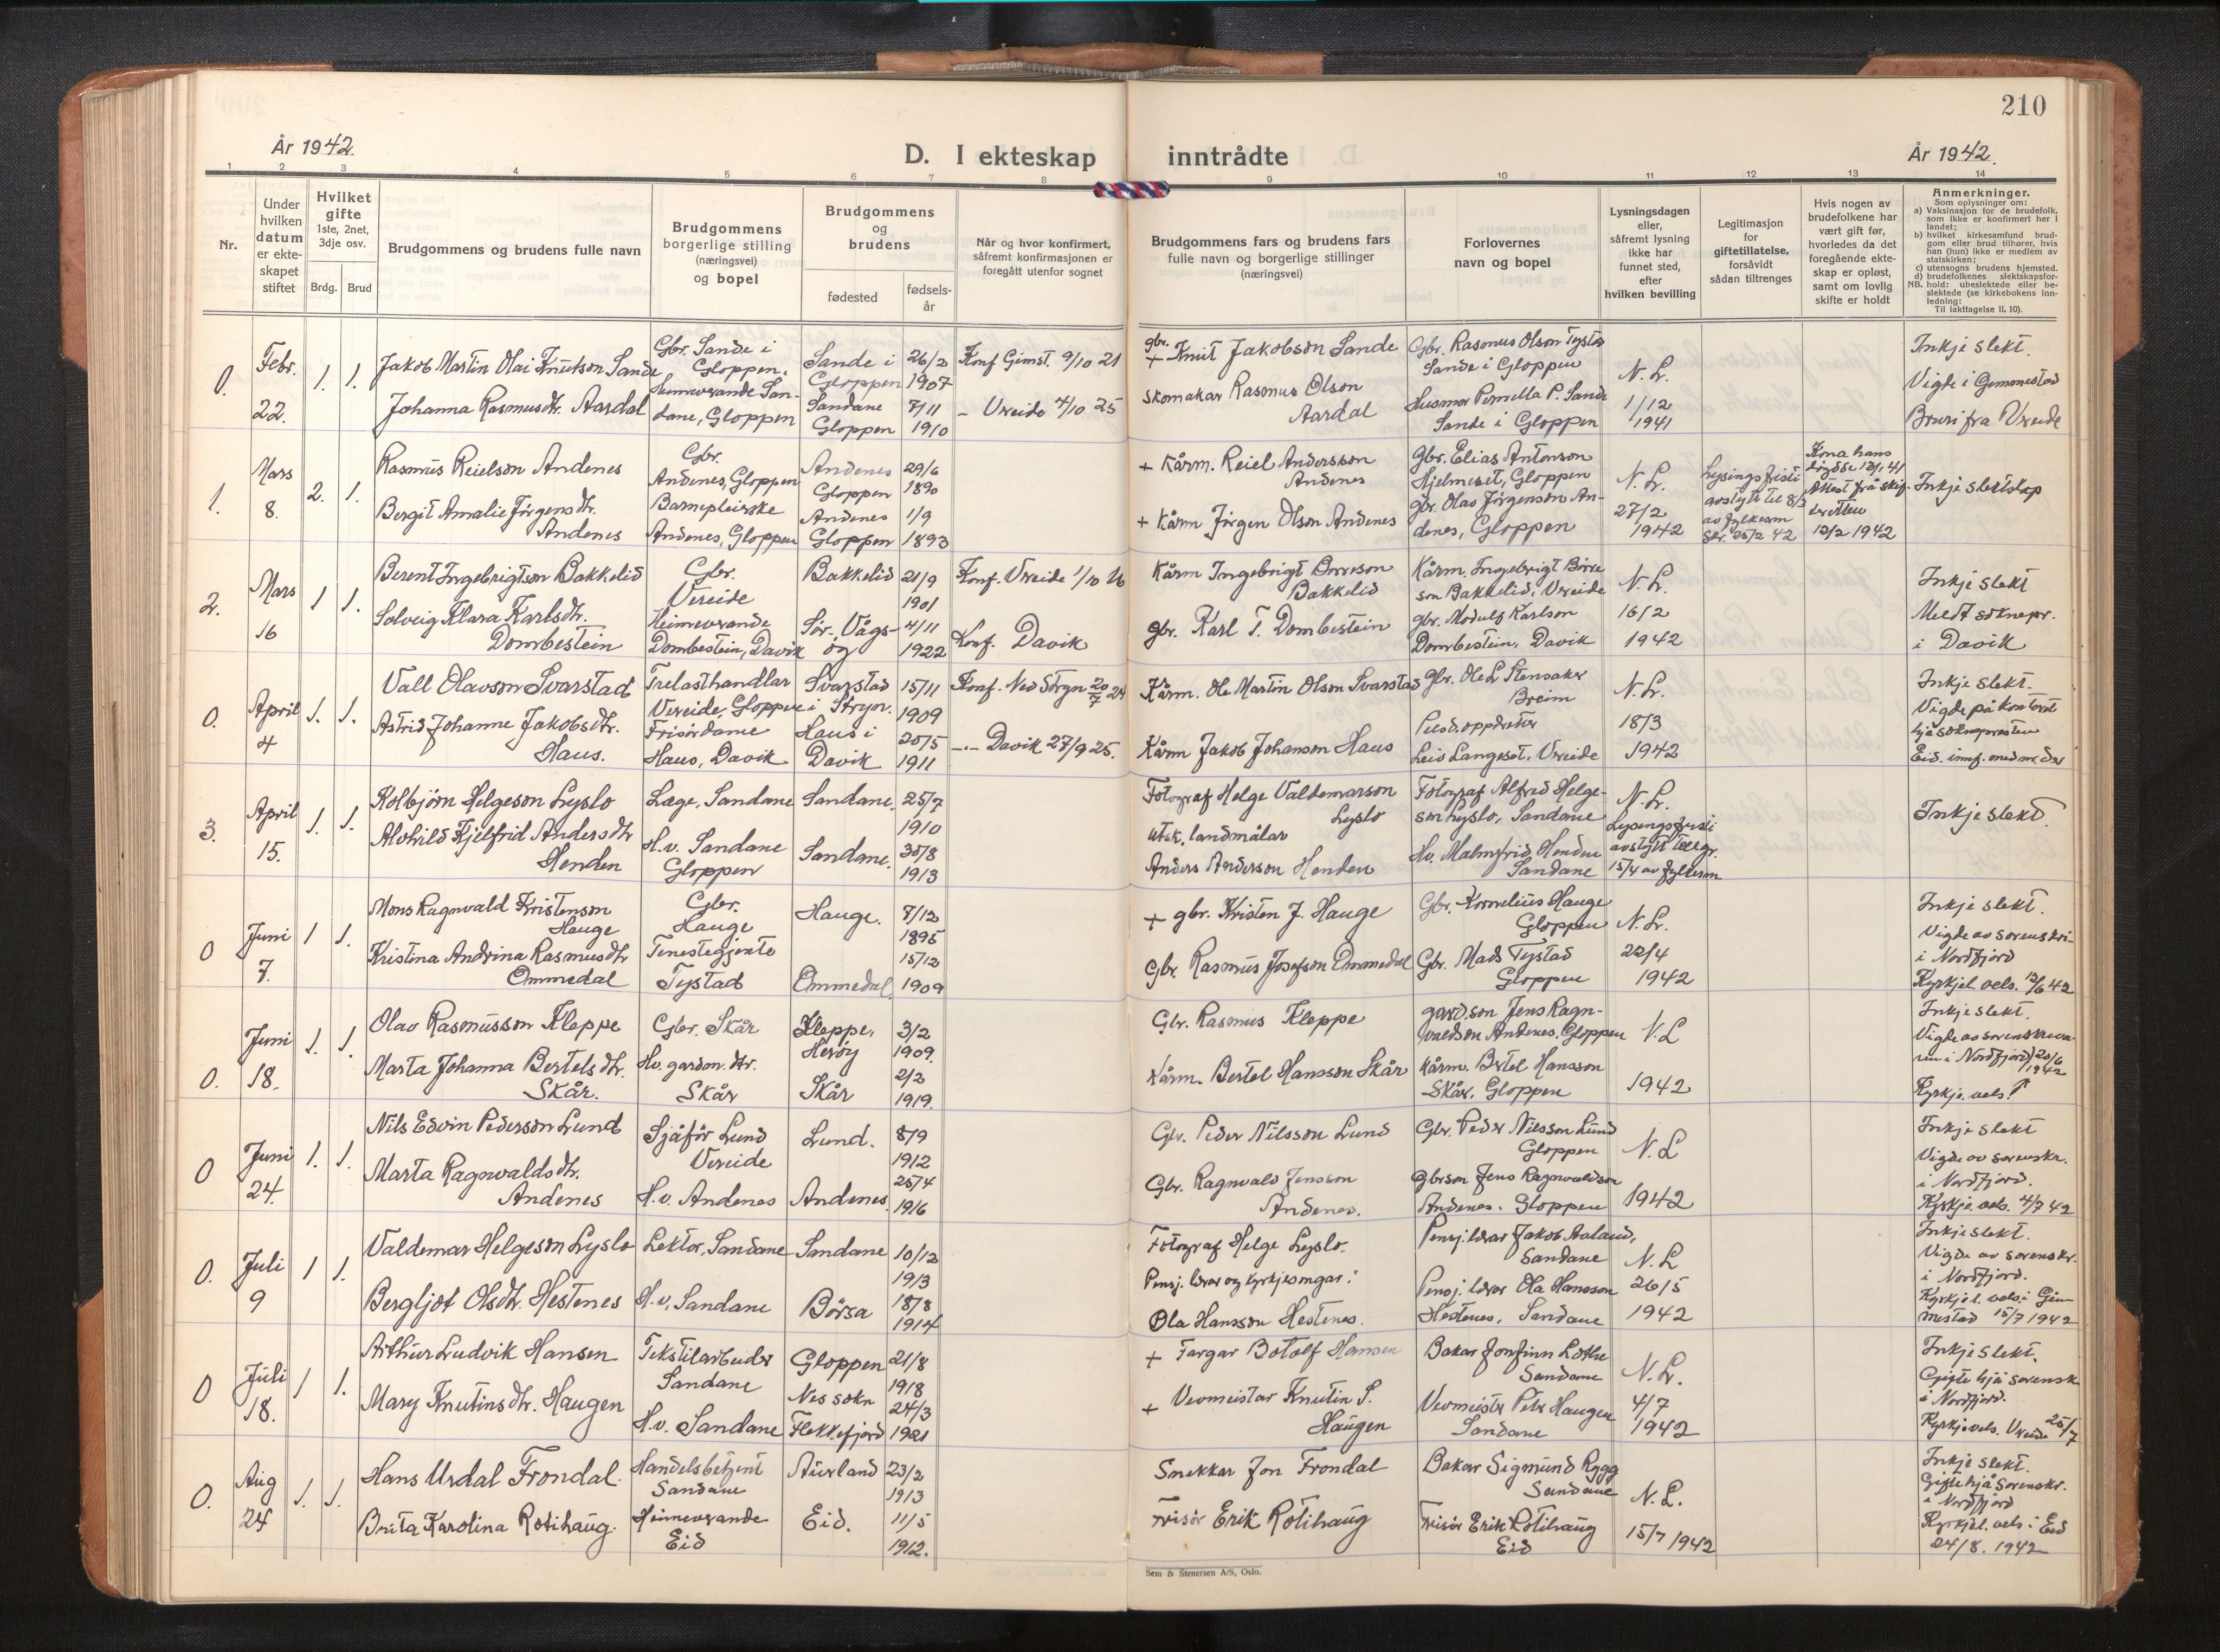 210
År 1942.
D. I ekteskap inntrådte
År 1942.
1 2 3 4 5 6 7 8 9 10 11 12 13 14
Nr.
Under
hvilken
datum
er ekte-
skapet
stiftet
Hvilket
gifte
1ste, 2net,
3dje osv.
Brdg. Brud
Brudgommens og brudens fulle navn
Brudgommens
borgerlige stilling
(næringsvei)
og bopel
Brudgommens
og
brudens
fødested
fødsels-
år
Når og hvor konfirmert,
såfremt konfirmasjonen er
foregått utenfor sognet
Brudgommens fars og brudens fars
fulle navn og borgerlige stillinger
(næringsvei)
Forlovernes
navn og bopel
Lysningsdagen
eller,
såfremt lysning
ikke har
funnet sted,
efter
hvilken bevilling
Legitimasjon
for
giftetillatelse,
forsåvidt
sådan tiltrenges
Hvis nogen av
brudefolkene har
vært gift før,
hvorledes da det
foregående ekte-
skap er opløst,
samt om lovlig
skifte er holdt
Anmerkninger.
Som oplysninger om:
a) Vaksinasjon for de brudefolk,
som ikke er konfirmert her i
landet;
b) hvilket kirkesamfund brud-
gom eller brud tilhører, hvis
han (hun) ikke er medlem av
statskirken;
c) utensogns brudens hjemsted.
d) brudefolkenes slektskapsfor-
NB. hold: ubeslektede eller be-
slektede (se kirkebokens inn-
ledning:
Til iakttagelse II, 10).
0.
Febr.
22.
1. 1.
Jakob Martin Olai Knutson Sande
Johanna Rasmusdtr. Aardal
Gbr. Sande i
Gloppen.
Heimeverande San-
dane, Gloppen
Sande i
Gloppen
Sandane
Gloppen
26/2
1907
7/11
1910
Konf Gimst. 9/10 21
- Vereide 4/10 25
gbr.
+ Knut Jakobson Sande
Skomakar Rasmus Olson
Aardal
Gbr. Rasmus Olson Tystad
Sande i Gloppen
Husmor Pernella P. Sande
Sande i Gloppen
N. L.
1/12
1941
Inkje slekt.
Vigde i Gimmestad
Bruri fra Vereide
1.
Mars
8.
2. 1.
Rasmus Reielson Andenes
Bergit Amalie Jørgensdtr.
Andenes
Gbr.
Andenes, Gloppen
Barnepleierske
Andenes, Gloppen
Andenes
Gloppen
Andenes
Gloppen
29/6
1890
1/9
1893
+ Kårm. Reiel Andersson
Andenes
+ Kårm Jørgen Olson Andenes
Gbr. Elias Antonson
Hjelmeset, Gloppen
gbr. Olav Jørgenson An-
denes, Gloppen
N. L.
27/2
1942
Lysingsfristi
avstytt til 8/3
av fylkesm
Skr. 25/2 42
Kona hans
døydde 12/1 41
Attest frå skif-
teretten
12/2 1942
Inkje slektskap
2.
Mars
16
1 1.
Berent Ingebrigtson Bakkelid
Solveig Klara Karlsdtr.
Dombestein
Gbr.
Vereide
Heimeverande
Dombestein, Davik
Bakkelid
Sør-Vågs-
øy
21/9
1901
4/11
1922
Konf. Vereide 1/10 16
Konf. Davik
Kårm Ingebrigt Borreson
Bakkelid
gbr. Karl T. Dombestein
Kårm. Ingebrigt Borre
son Bakkelid, Vereide
gbr. Modulf Karlson
Dombestein, Davik
N. L.
16/2
1942
Inkje slekt
Meldt soknepr.
i Davik
0.
April
4
1. 1.
Vall Olavson Svarstad
Astrid Johanne Jakobsdtr.
Haus.
Trelasthandlar
Vereide, Gloppen
Frisørdame
Haus, Davik
Svarstad
i Stryn.
Haus i
Davik
15/11
1909
20/5
1911
Konf. Ned Stryn 20/7 24
-"- Davik 27/9 25.
Kårm. Ole Martin Olson Svarstad
Kårm Jakob Johanson Haus
Gbr. Ole L Stensaker
Breim
Pelsd.oppdretter
Leiv Langeset, Vereide
N. L.
18/3
1942
Inkje slekt.
Vigde på kontoret
hjå soknepresten
Eid. innf. med nr. der
3.
April
15.
1. 1.
Kolbjørn Helgeson Lyslo
Alvhild Kjelfrid Andersdtr
Henden
Læge, Sandane
H.v. Sandane
Gloppen
Sandane.
Sandane.
25/7
1910
30/8
1913
Fotograf Helge Valdemarson
Lyslo
utsk. landmålar
Anders Anderson Henden
Fotograf Alfred Helge-
son Lyslo, Sandane
Hv. Malmfrid Henden
Sandane
N. L.
Lysingsfristi
avstytt telegr.
15/4 av fylkesm
Inkje slekt.
0
Juni
7.
1 1.
Mons Ragnvald Kristenson
Hauge
Kristina Andrina Rasmusdtr
Ommedal
Gbr.
Hauge
Tenestegjente
Tystad
Hauge.
Ommedal
7/12
1895
15/12
1909
+ gbr. Kristen J. Hauge
Gbr. Rasmus Josefson Ommedal
Gbr. Kornelius Hauge
Gloppen
Gbr. Mads Tystad
Gloppen
N. L.
22/4
1942
Inkje slekt.
Vigde av sorenskri-
i Nordfjord
Kyrkjel. vels. 12/6 42
0.
Juni
18.
1. 1.
Olav Rasmusson Kleppe
Marta Johanna Bertelsdtr.
Skår.
Gbr. Skår
Hv. gardm. dtr.
Skår
Kleppe,
Herøy
Skår
3/2
1909.
2/2
1919.
Gbr. Rasmus Kleppe
Kårm. Bertel Hansson Skår
gardson Jens Ragn-
valdson Andenes, Gloppen
Kårm. Bertel Hansson
Skår, Gloppen
N. L
1942
Inkje slekt.
Vigde av sorenskriva-
ren i Nordfjord 20/6
1942
Kyrkje. vels.
0
Juni
24.
1. 1.
Nils Edvin Pederson Lund
Marta Ragnvaldsdtr.
Andenes
Sjåfør Lund
Vereide
H.v. Andenes
Lund.
Andenes
8/9
1912
25/4
1916
Gbr. Peder Nilsson Lund
Gbr. Ragnvald Jensson
Andenes.
Gbr. Peder Nilsson Lund
Gloppen
Gbrson Jens Ragnvaldson
Andenes. Gloppen
N. L
1942
Inkje slekt
Vigde av sorenskr.
i Nordfjord.
Kyrkje. vels. 4/7 42
0.
Juli
9
1 1.
Valdemar Helgeson Lyslo
Bergljot Olsdtr. Hestenes
Lektor, Sandane
H.v, Sandane
Sandane
Børsa
10/12
1913
18/8
1914
Fotograf Helge Lyslo.
Pensj. lærar og kyrkjesongar:
Ola Hansson Hestenes.
Pensj. lærar Jakob Aaland,
Sandane
Pensj. lærar Ola Hansson
Hestenes, Sandane
N. L
26/5
1942
Inkje slekt.
Vigde av sorenskr.
i Nordfjord.
Kyrkjel. vels. i Gim-
mestad 15/7 1942
0
Juli
18.
1 1.
Arthur Ludvik Hansen
Mary Knutinsdtr. Haugen
Tekstilarbeider
Sandane
H.v. Sandane
Gloppen
Nes sokn
Flekkefjord
21/8
1918
24/3
1921
+ Fargar Botolf Hansen
+ Vevmeistar Knutin S.
Haugen
Bakar Jonfinn Lothe
Sandane
Vevmeister Peter Haugen
Sandane
N. L.
4/7
1942
Inkje slekt.
Gifte hjå sorensk
i Nordfjord.
Kyrkjevels. Vereide 25/7
0.
Aug
24
1. 1.
Hans Urdal Frondal.
Brita Karolina Rotihaug.
Handelsbetjent
Sandane
Heimeverande
Eid
Aurland
Eid.
23/2
1913
11/5
1912.
Snekkar Jon Frondal
Frisør Erik Rotihaug
Bakar Sigmund Rygg
Sandane
Frisør Erik Rotihaug
Eid
N. L.
15/7 1942
Inkje slekt.
Gifte hjå Sorenskr.
i Nordfjord
Kyrkjel. vels. i Eid
24/8. 1942
Sem & Stenersen A/S, Oslo.